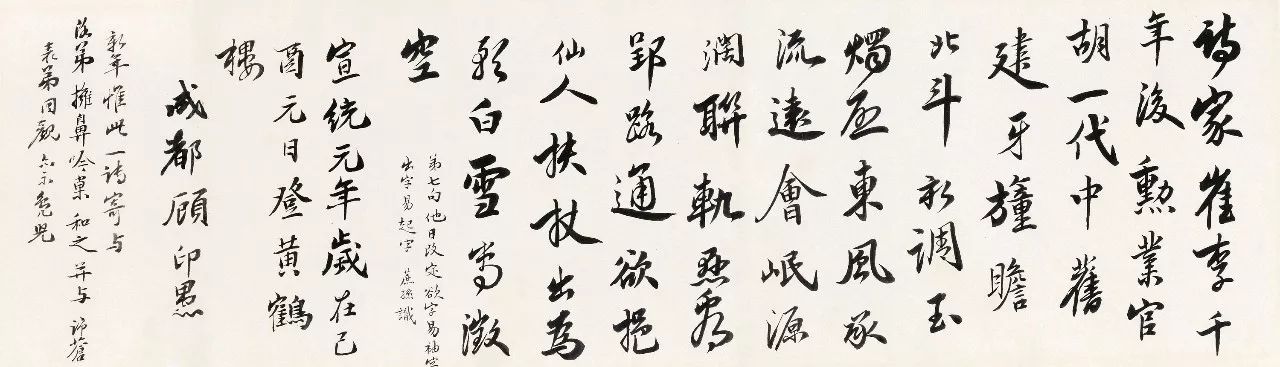 詩家崔李千
年後勲業官
胡一代中舊
建牙旗瞻
北斗新調玉
燭丞東風承
流遠會岷源
濶聯軌
郢路通欲挹
仙人扶杖出為
歌白雪寄澂
空
弟七句他日改定欲字易袖字
出字易起字 蔗孫識
宣統元年歲在己
酉元日登黃鶴
樓
成都顧印愚
新年惟此一詩寄与
弟擁鼻吟 和之并与
表弟同觀